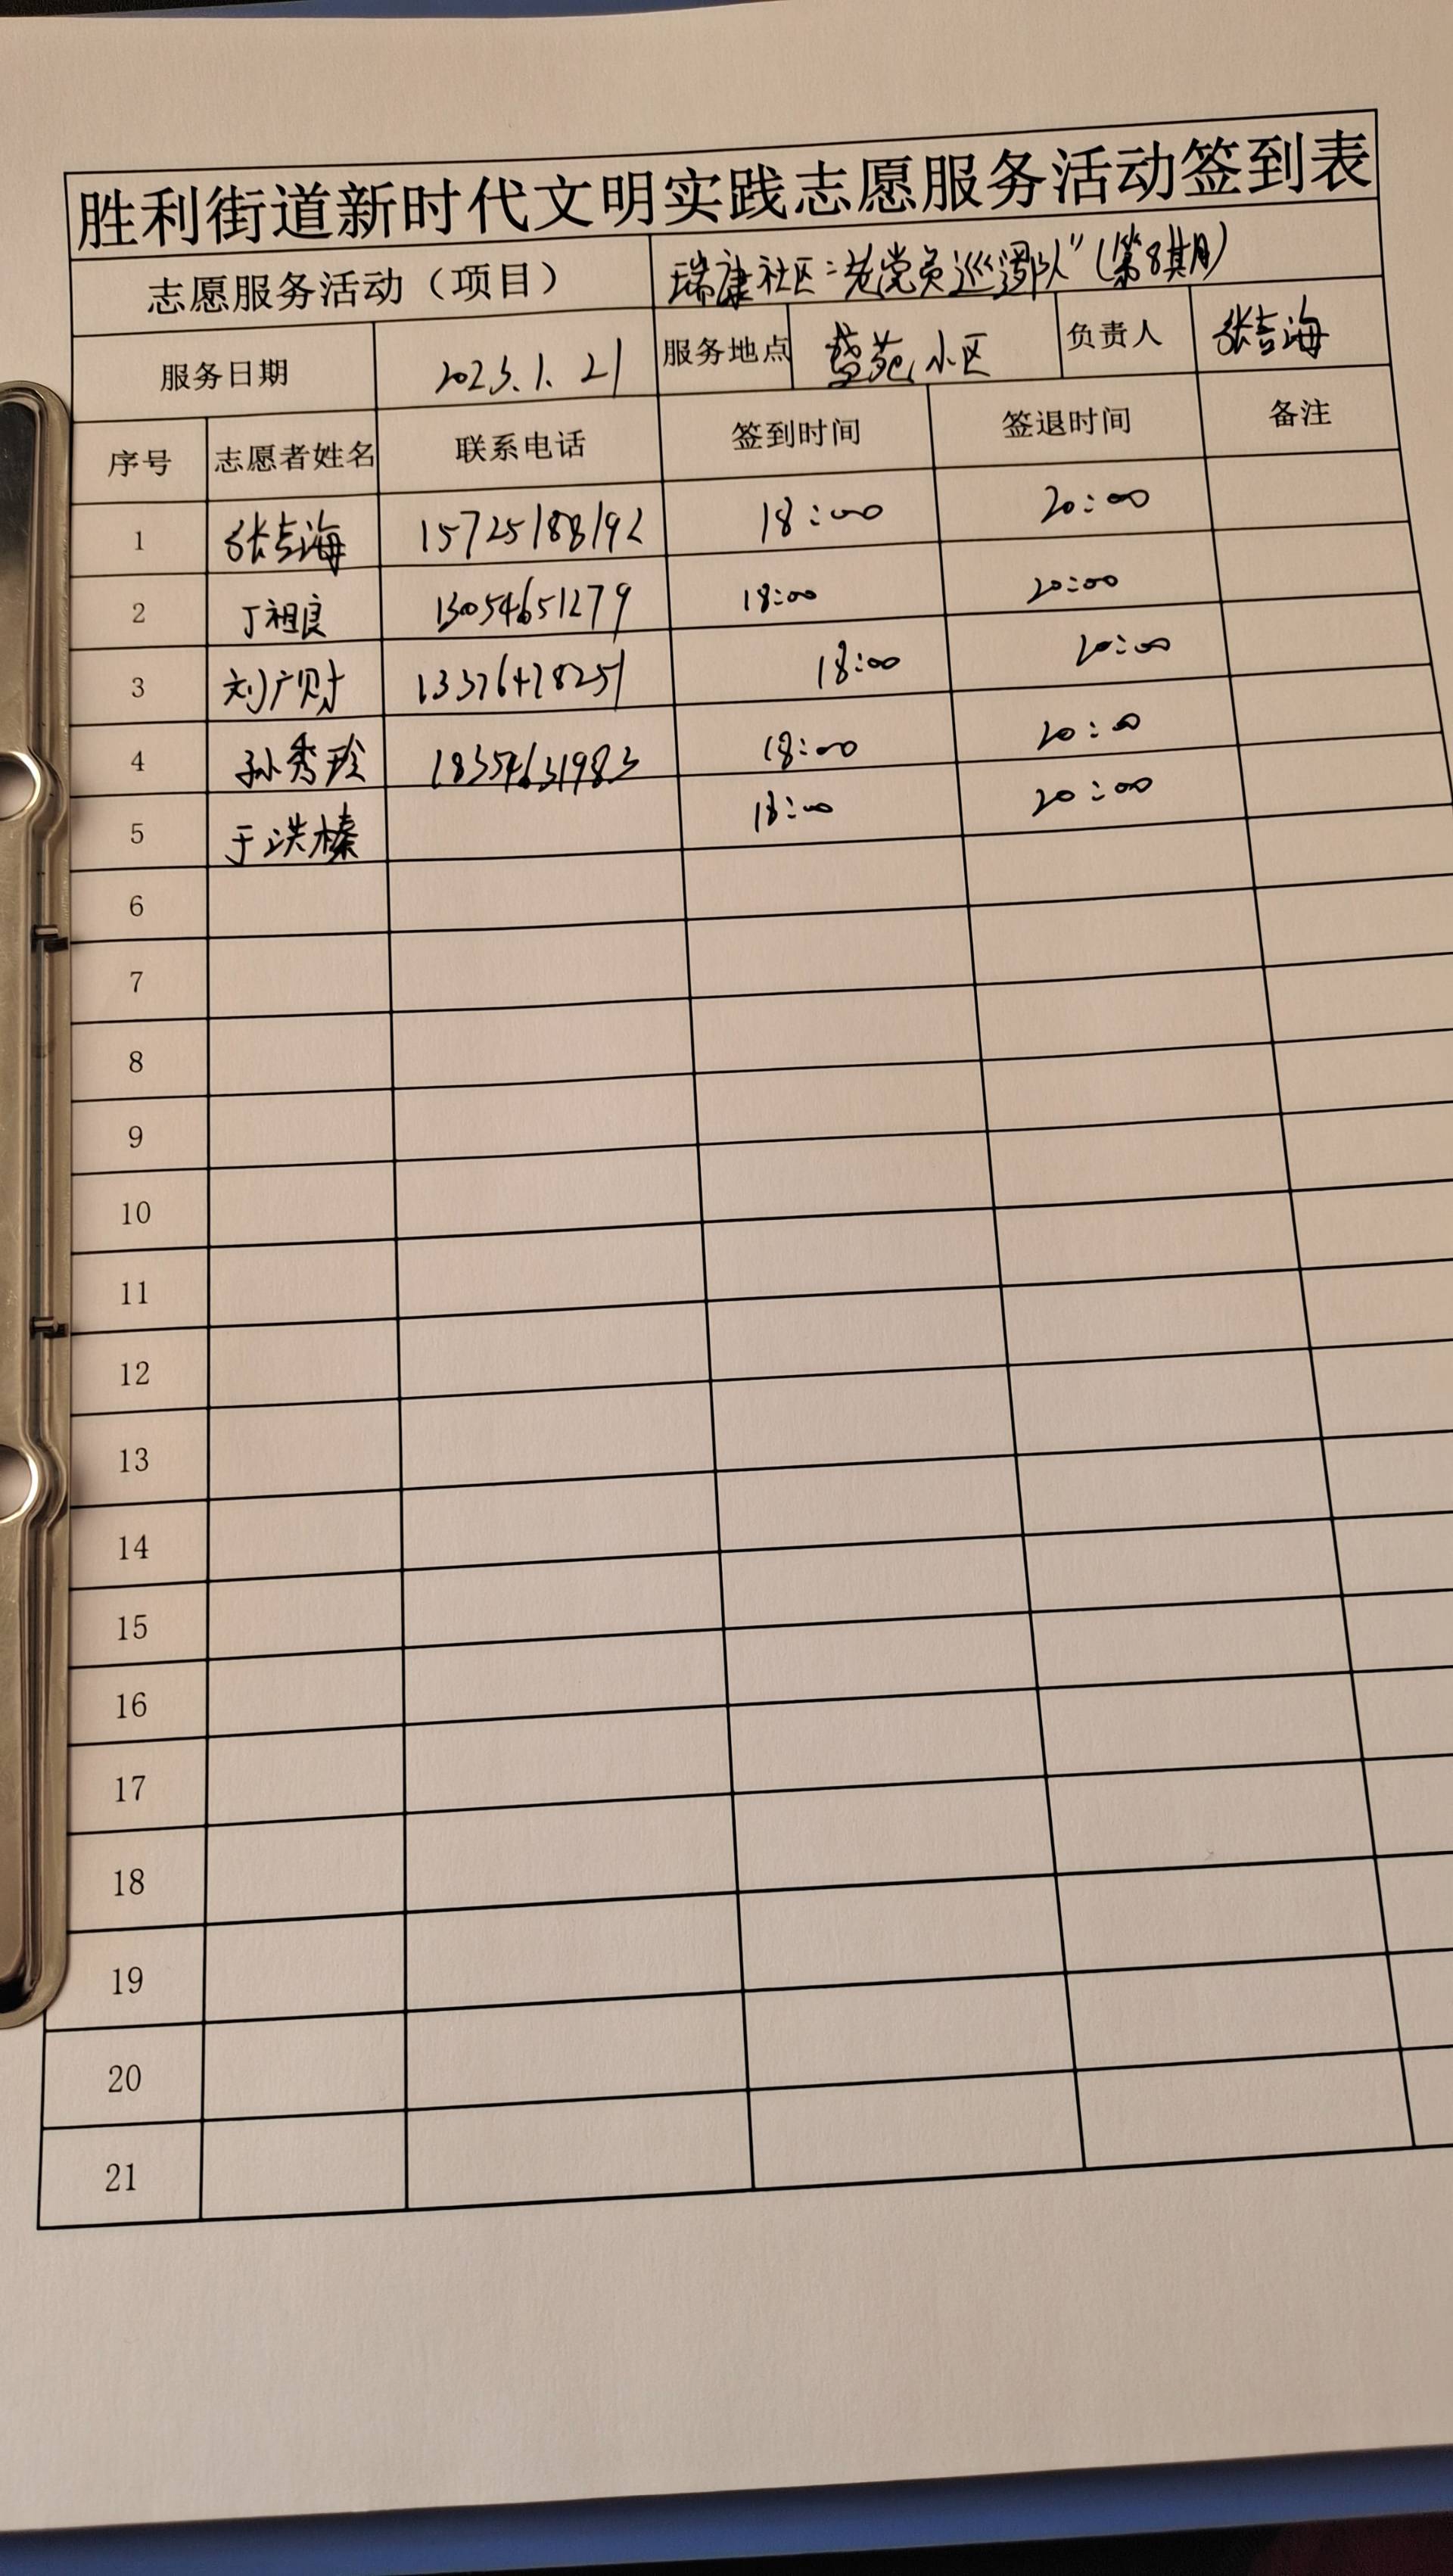 胜利街道新时代文明实践志愿服务活动签到表
志愿服务活动（项目） 瑞康社区“老党员巡逻队”（第8期）
服务日期 2023.1.21 服务地点 苑小区 负责人 张吉海
序号 志愿者姓名 联系电话 签到时间 签退时间 备注
1 张吉海 15725188192 18:00 20:00
2 丁祖良 13054651279 18:00 20:00
3 刘广财 13376478251 18:00 20:00
4 孙秀珍 18354631983 18:00 20:00
5 于洪榛 18:00 20:00
6
7
8
9
10
11
12
13
14
15
16
17
18
19
20
21